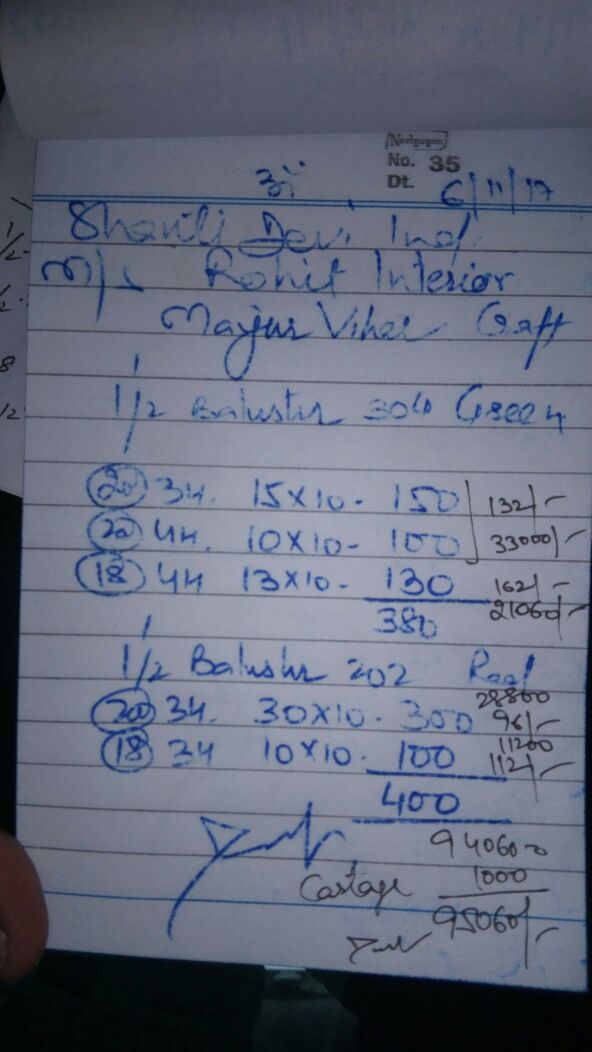 Neelgagan
No. 35
Dt. 6/11/17
ॐ
Devi Ind.
M/s Rohit Interior
Mayur Vihar
1/2 Baluster 304 Green
(20) 34. 15X10- 150 132/-
(20) 44. 10X10- 100 33000/-
(18) 44 13X10- 130 162/-
380 21060/-
1/2 Baluster 202 Red
28800
(20) 34. 30X10- 300 96/-
11200
(18) 34 10X10- 100 112/-
400
94060
Cartage 1000
95060/-